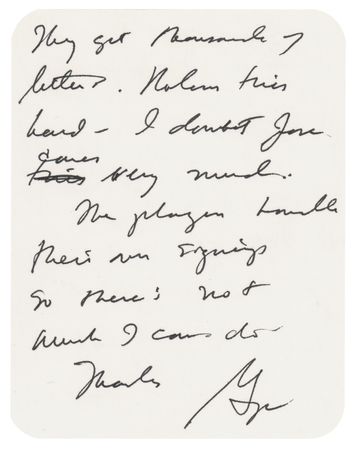 They get thousands of
letters. Nolan tries
hard - I doubt Jose
cares
very much.
The players handle
their own signings
so there's not
much I can do
Thanks